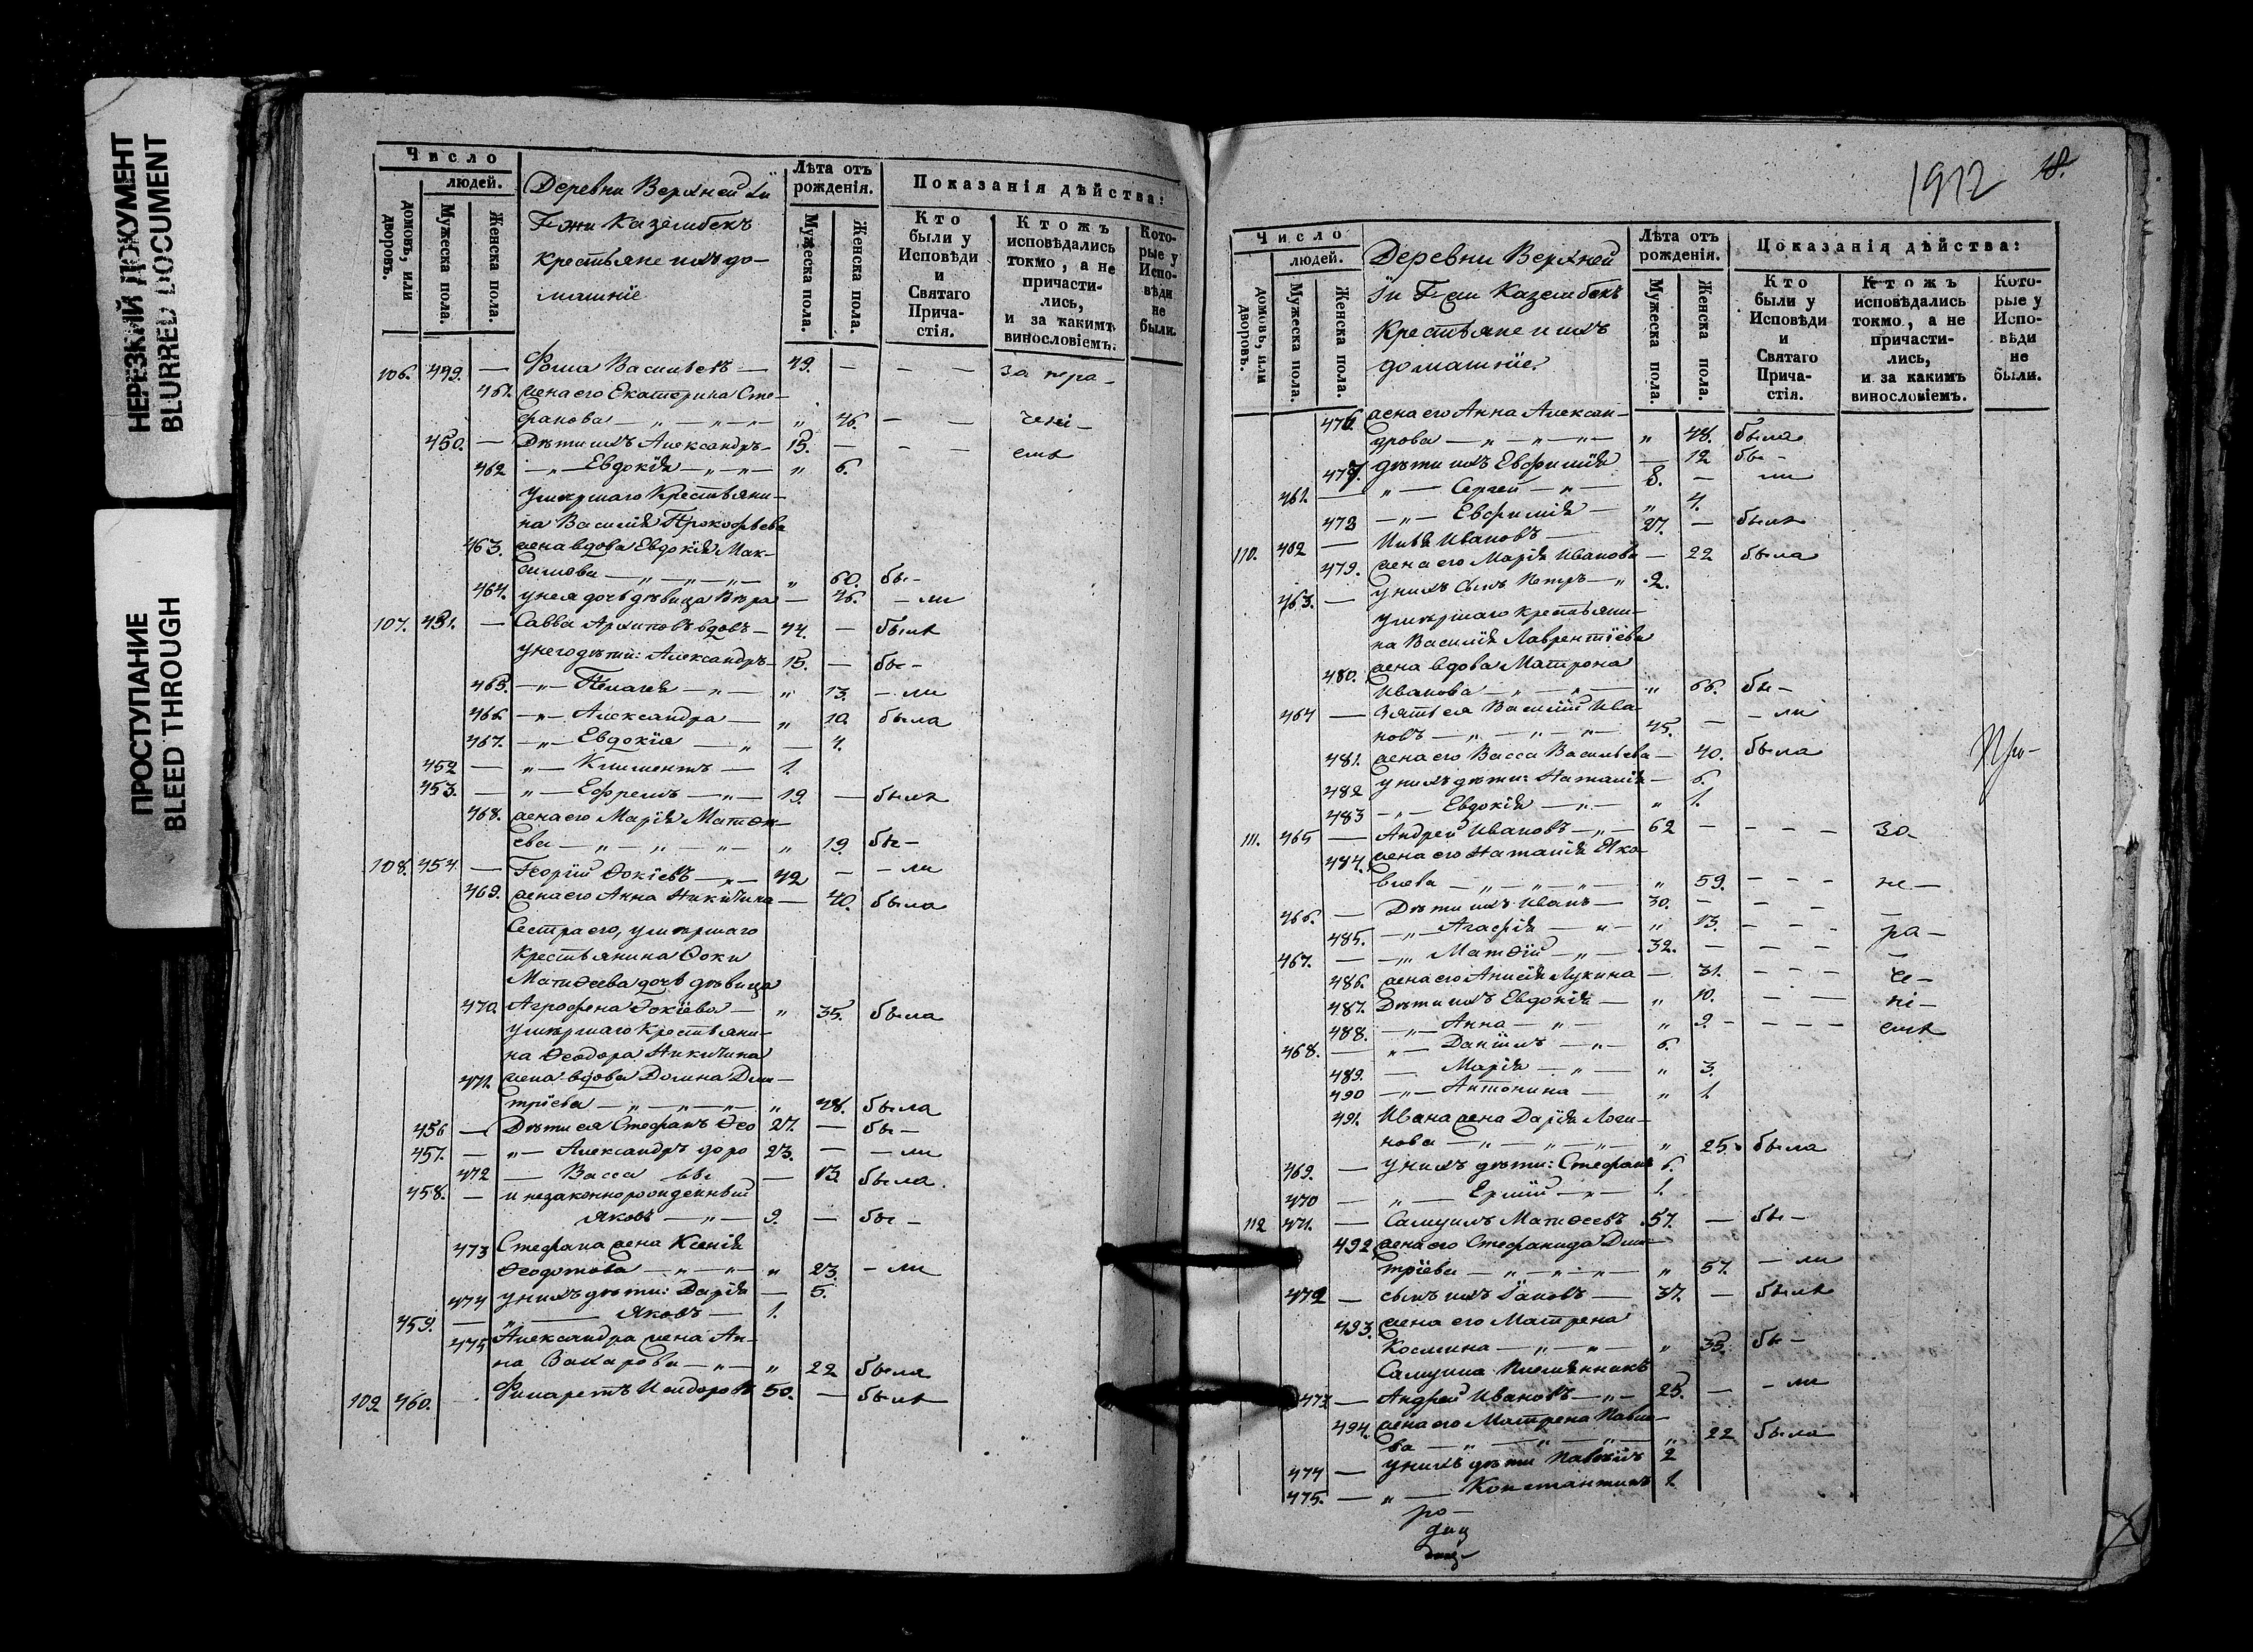 НЕРЕЗКИЙ ДОКУМЕНТ
BLURRED DOCUMENT
ПРОСТУПАНИЕ
BLEED THROUGH
Число
людей.
домовъ, или дворовъ.
Мужеска пола.
Женска пола.
Деревни Верхней
Казембекъ
крестьяне и ихъ до-
машніе
Лѣта отъ рожденія.
Мужеска пола.
Женска пола.
Показанія дѣйства:
Кто были у Исповѣди и Святаго Причастія.
Ктожъ исповѣдались токмо, а не причастились, и за какимъ винословіемъ.
Которые у Исповѣди не были.
106. 449. — Ѳома Васильевъ — 49. — — — за нера-
461. жена его Екатерина Сте-
фанова — „ — „ — „ — „ 46. — — чені-
450. — Дѣти ихъ Александръ — 15. — — — емъ
462 — „ — Евдокія — „ — „ — „ 6.
умершаго крестьяни-
на Василія Прокофьева
463. жена вдова Евдокія Мак-
симова — „ — „ — „ — „ 60. бы-
464. у нея дочь дѣвица Вѣра — 46. — ли
107. 451. — Савва Архиповъ вдовъ — 44. — былъ
у него дѣти: Александръ — 15. — бы-
465. — „ — Пелагея — „ — „ 13. — ли
466 — „ — Александра — „ 10. была
467. — „ — Евдокія — „ — 4.
452 — „ — Климентъ — 1.
453. — „ — Ефремъ — „ — 19. — былъ
468. жена его Марія Матѳе-
ева — „ — „ — „ — „ 19. бы-
108. 454. — Георгій Ѳокіевъ — „ — 42 — — ли
469. жена его Анна Никитина — 40. была
Сестра его, умершаго
крестьянина Ѳоки
Матѳеева дочь дѣвица
470. Агрофена Ѳокіева — „ 35. была
умершаго крестьяни-
на Ѳеодора Никитина
471. жена вдова Домна Дми-
тріева — „ — „ — „ — „ 48. была
456 — Дѣти ея Стефанъ Ѳео 27. — бы-
457. — „ — Александръ доро 23. — — ли
472 — Васса вы — 13. была.
458. — и незаконнорожденный
Яковъ — „ — 9. — бы-
473 Стефана жена Ксенія
Ѳедотова — „ — „ — „ 23. — ли
474 у нихъ дѣти: Дарія — 5.
459. — „ — Яковъ — 1.
475 Александра жена Ан-
на Захарова — „ — „ 22 была
109 460. Филаретъ Исидоровъ 50. — былъ
1912 18.
Число
людей.
домовъ, или дворовъ.
Мужеска пола.
Женска пола.
Деревни Верхней
Казембекъ
Крестьяне и ихъ
домашніе.
Лѣта отъ рожденія.
Мужеска пола.
Женска пола.
Показанія дѣйства:
Кто были у Исповѣди и Святаго Причастія.
Ктожъ исповѣдались токмо, а не причастились, и за какимъ винословіемъ.
Которые у Исповѣди не были.
476. жена его Анна Алексан-
дрова — „ — „ — „ — „ 48. была
477. дѣти ихъ Евфимія — 12 бы-
461. — „ — Сергей — „ — 8. — ли
478 — „ — Евфимія — „ 4.
110. 462 — Илья Ивановъ — 27. — былъ
479. жена его Марія Иванова — 22 была
463. — у нихъ сынъ Петръ — „ 2.
умершаго крестьяни-
на Василія Лаврентіева
480. жена вдова Матрона
Иванова — „ — „ — „ 66. бы-
464 — Зять ея Василій Ива-
новъ — „ — „ — „ — 45. — — ли
481. жена его Васса Васильева — 40. была
482 у нихъ дѣти: Наталія — 6.
483 — „ — Евдокія — „ — „ 1.
111. 465 — Андрей Ивановъ — „ — 62 — — — — за-
484. жена его Наталія Яко-
влева — „ — „ — „ — „ 59. — — — не-
466. — Дѣти ихъ Иванъ — 30. — — —
485. — „ — Агафія — „ — „ 13. — — — ра-
467. — — „ Матѳій — „ — 32. — — —
486. жена его Анисія Лукина — 31. — — — че-
487. Дѣти ихъ Евдокія — „ 10. — — ні-
488. — „ — Анна — „ — „ 9. — — — — емъ
468. — „ — Даніилъ — „ — 6.
489. — Марія — „ — „ 3.
490 — „ — Антонина — „ 1
491. Ивана жена Дарія Логи-
нова — „ — „ — „ — „ 25. была
469. — у нихъ дѣти: Стефанъ 6.
470 — „ — Ермій — „ — 1.
112 471. — Самуилъ Матѳеевъ 57. — бы-
492 жена его Стефанида Дми-
тріева — „ — „ — „ — „ 57. — ли
472 — сынъ ихъ Іаковъ — 37. — былъ
493. жена его Матрена
Космина — „ — „ — „ 35. бы-
Самуила племянникъ
473 — Андрей Ивановъ — „ — 25. — — ли
494. жена его Матрена Павло-
ва — „ — „ — „ — „ 22 была
474 — у нихъ дѣти Павелъ 2
475. — „ — Константинъ 1.